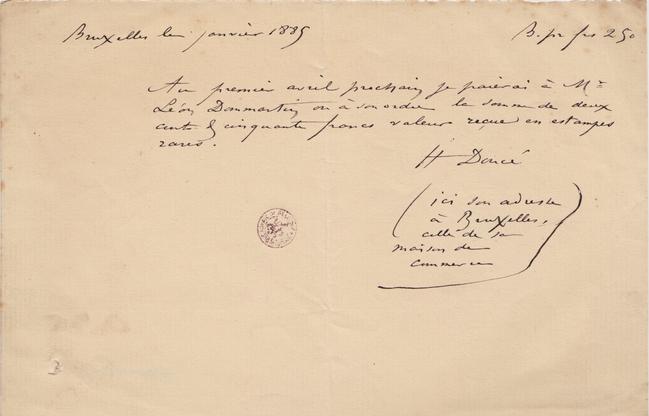 Bruxelles le janvier 1885 B. pr frs 250
Au premier avril prochain je paierai à Mr
Léon Dommartin ou à son ordre la somme de deux
cents & cinquante francs valeur reçue en estampes
rares.
H Doucé
(ici son adresse
à Bruxelles,
celle de sa
maison de
commerce)